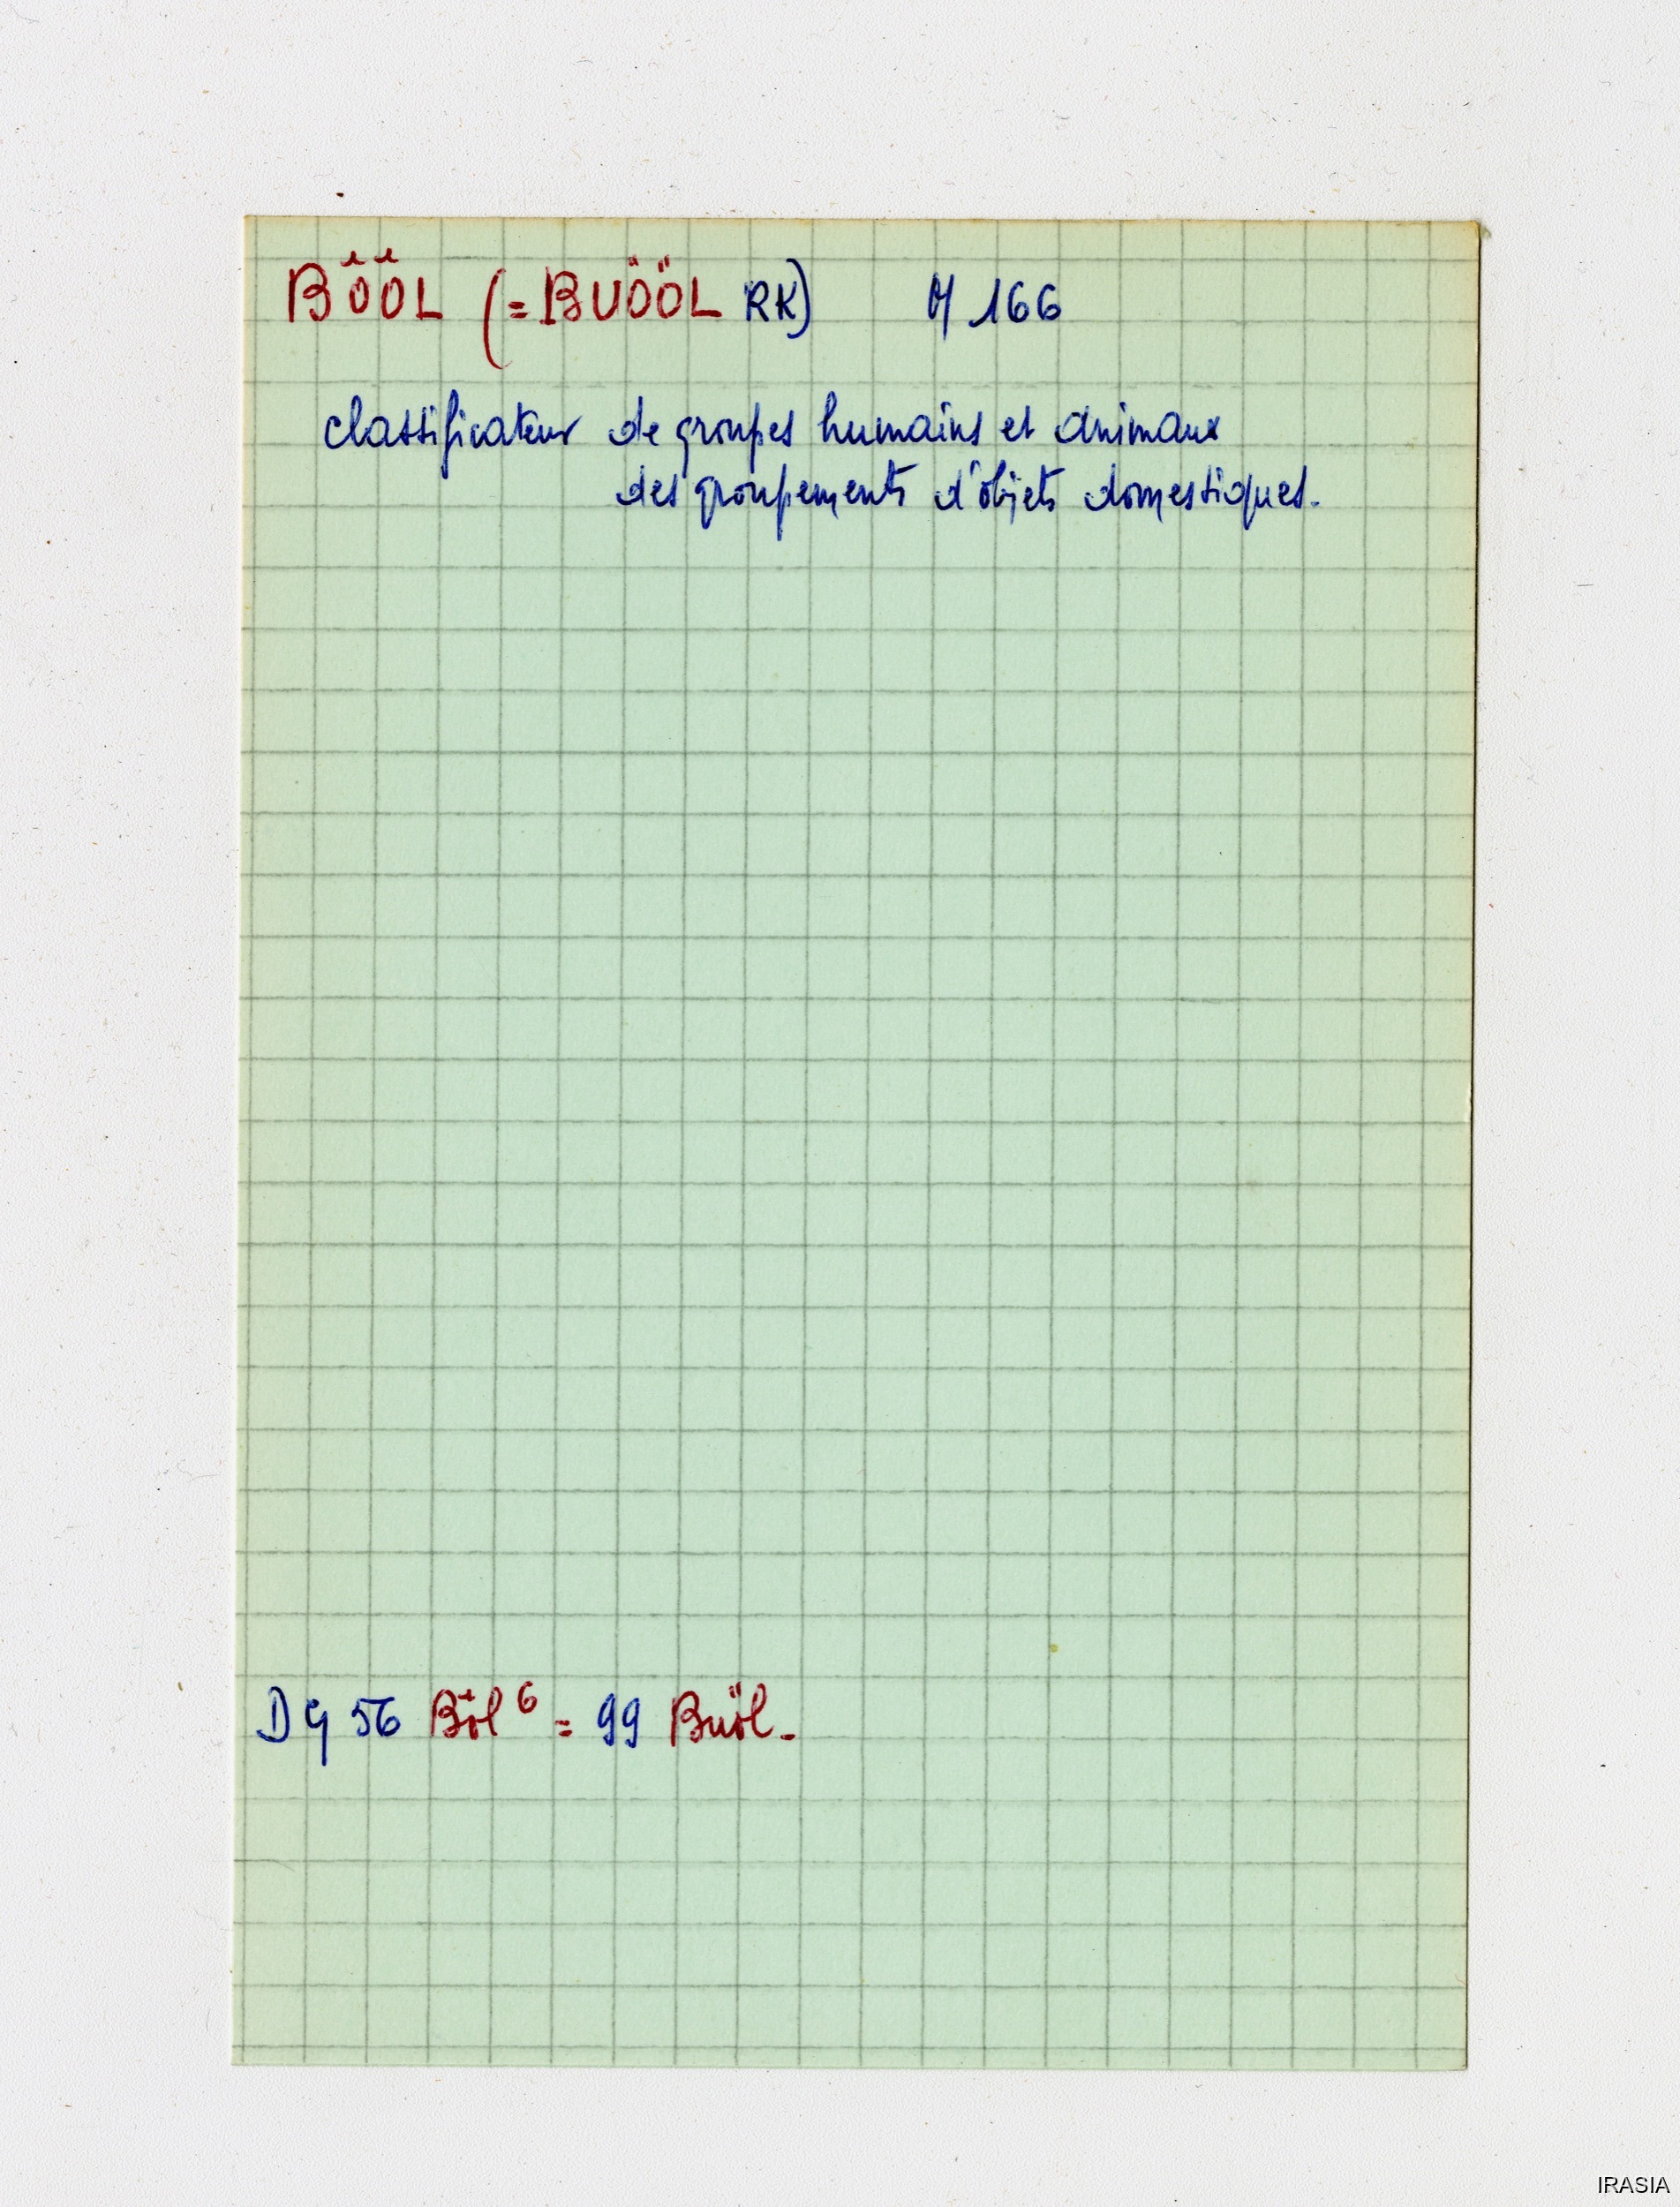 BỞ̆Ở̆L (= BUÖÖL RK) M 166
classificateur de groupes humains et animaux
des groupements d'objets domestiques.
DG 56 Böl 6 = 99 Buöl.
IRASIA